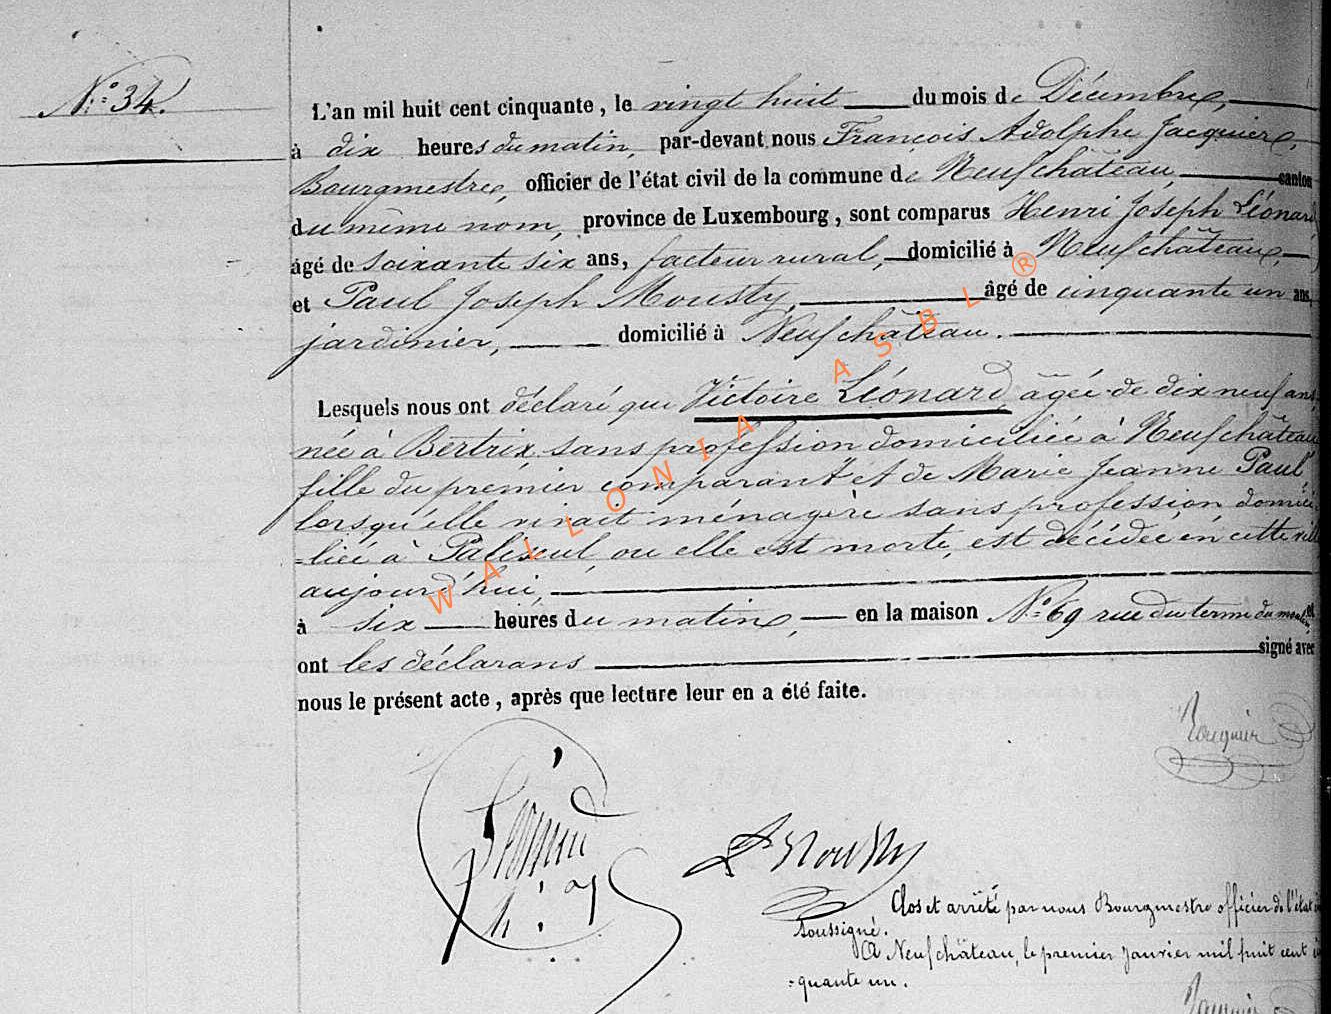 N.° 34.
L'an mil huit cent cinquante, le vingt huit du mois de Décembre,
à dix heures du matin, par-devant nous François Adolphe Jacquier,
Bourgmestre, officier de l'état civil de la commune de Neufchâteau canton
du même nom, province de Luxembourg, sont comparus Henri Joseph Léonard
âgé de soixante six ans, facteur rural, domicilié à Neufchâteau,
et Paul Joseph Mousty, âgé de cinquante un ans,
jardinier, domicilié à Neufchâteau.
Lesquels nous ont déclaré que Victoire Léonard, âgée de dix neuf ans,
née à Bertrix, sans profession domiciliée à Neufchâteau
fille du premier comparant et de Marie Jeanne Paul,
lorsqu'elle vivait ménagère sans profession domici
=liée à Paliseul, ou elle est morte, est décédée en cette ville
aujourd'hui,
à six heures du matin, en la maison N.° 69 rue du terme du moulin, et
ont les déclarans signé avec
nous le présent acte, après que lecture leur en a été faite.
Jacquier
Léonard
h. j
P J Mousty
Clos et arrêté par nous Bourgmestre officier de l'état
soussigné.
A Neufchâteau, le premier Janvier mil huit cent cin
=quante un.
Jacquier
WALLONIA ASBL ®